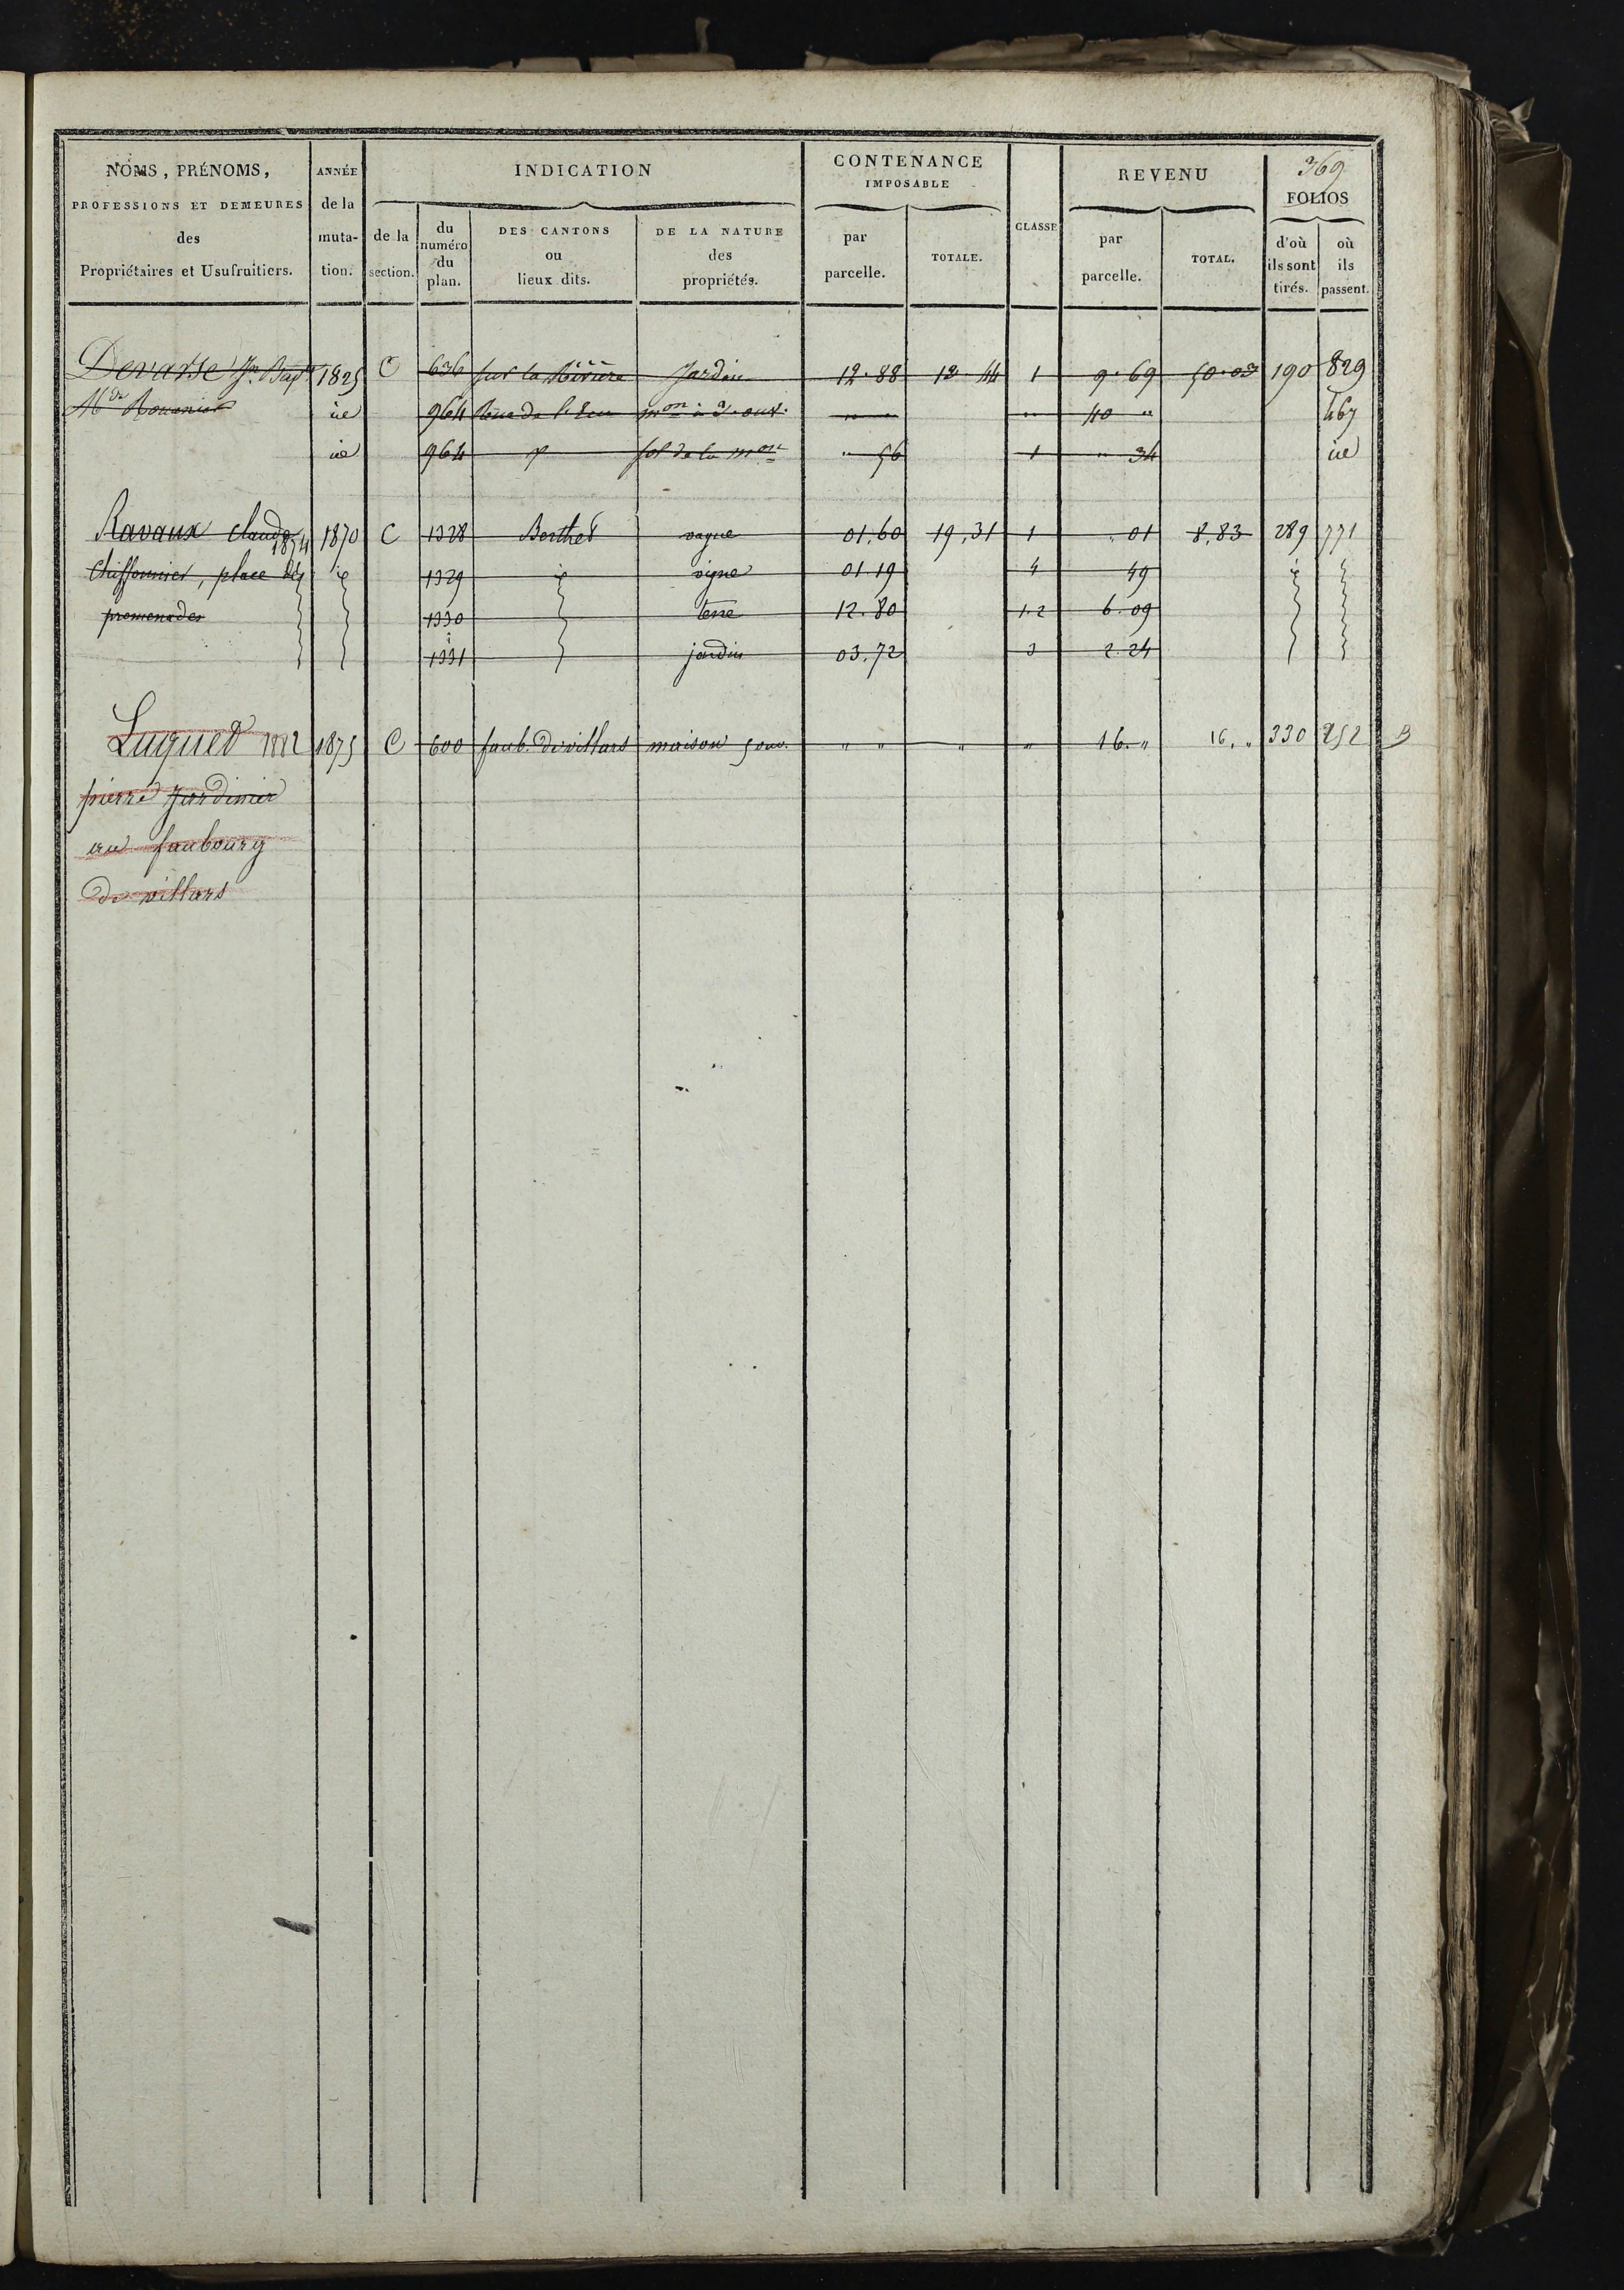 369
NOMS, PRÉNOMS, PROFESSIONS ET DEMEURES des Propriétaires et Usufruitiers.
ANNÉE de la muta- tion.
INDICATION
de la section.
du numéro du plan.
DES CANTONS ou lieux dits.
DE LA NATURE des propriétés.
CONTENANCE IMPOSABLE
par parcelle.
TOTALE.
CLASSE
REVENU
par parcelle.
TOTAL.
FOLIOS
d'où ils sont tirés.
où ils passent.
Devarse Jn Bapte 1825 C 636 sur la Rivière Jardin 12.88 13.44 1 9.69 50.03 190 829
Md 964 mon à 3. ouv. " " " 40 " 467
964 sol de la mon " 56 1 " 34
Ravaux Claude 1874 1870 C 1328 Berthet vague 01.60 19.31 1 .01 8.83 289 771
Chiffonnier, place des 1329 vigne 01 19 4 49
promenades 1330 terre 12.80 1.2 6.09
1331 jardin 03.72 3 2.24
Luquet 1882 1875 C 600 faub. de villars maison 5 ouv. " " " " 16. " 16. " 330 252 B
pierre Jardinier
au faubourg
de villars